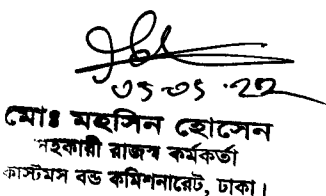 ০১-০১-২২
মোঃ মহসিন হোসেন
সহকারী রাজস্ব কর্মকর্তা
কাস্টমস বন্ড কমিশনারেট, ঢাকা।